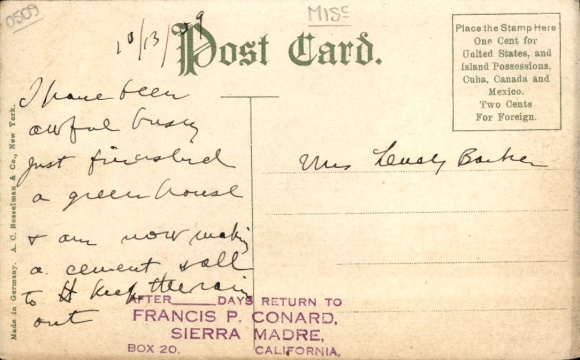 0509
MISC
10/13/09
Post Card.
Place the Stamp Here
One Cent for
United States, and
Island Possessions,
Cuba, Canada and
Mexico.
Two Cents
For Foreign.
I have been
awful busy
just finished
a green house
& am now making
a cement wall
to keep the rain
out
Mrs Barker
AFTER____DAYS RETURN TO
FRANCIS P. CONARD,
SIERRA MADRE,
BOX 20. CALIFORNIA,
Made in Germany. A. C. Bosselman & Co., New York.